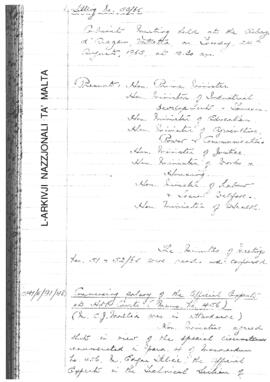 L-ARKIVJI NAZZJONALI TA' MALTA
Sitting No. 53/65
Cabinet Meeting held at the Auberge
d' Aragon Valletta on Tuesday, 24th
August, 1965, at 9.30 am.
Present: Hon. Prime Minister
Hon. Minister of Industrial
Development & Tourism
Hon. Minister of Education
Hon. Minister of Agriculture,
Power & Communications
Hon. Minister of Justice
Hon. Minister of Works &
Housing
Hon. Minister of Labour
& Social Welfare
Hon. Minister of Health.
The Minutes of Meetings
Nos. 51 & 52/65 were read and confirmed
of the Official Experts
at HM Courts (Memo No. 456)
(Mr. was in attendance)
Hon. Ministers agreed
that in view of the special circumstances
enumerated in para of Memorandum
No 456, Mr. Edgar the Official
Experts in the Technical Section of